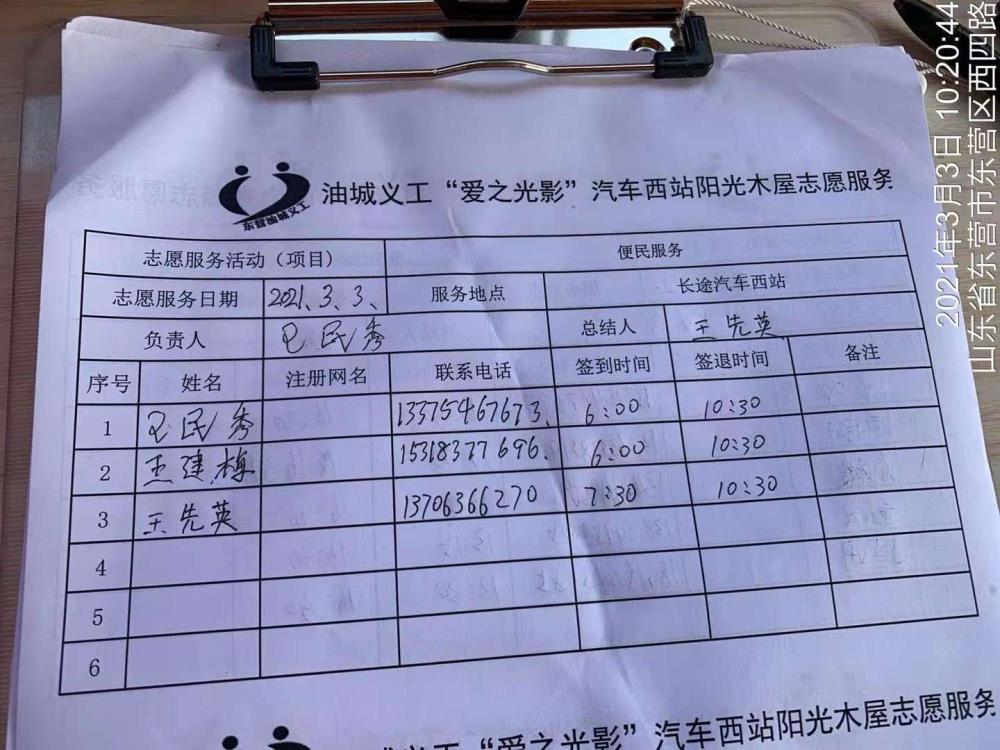 油城义工“爱之光影”汽车西站阳光木屋志愿服务
东营油城义工
志愿服务活动（项目） 便民服务
志愿服务日期 2021.3.3. 服务地点 长途汽车西站
负责人 民秀 总结人 王先英
序号 姓名 注册网名 联系电话 签到时间 签退时间 备注
1 民秀 13375467673. 6:00 10:30
2 王建梅 15318377696. 6:00 10:30
3 王先英 13706366270 7:30 10:30
4
5
6
“爱之光影”汽车西站阳光木屋志愿服务
2021年3月3日 10:20:44
山东省东营市东营区西四路